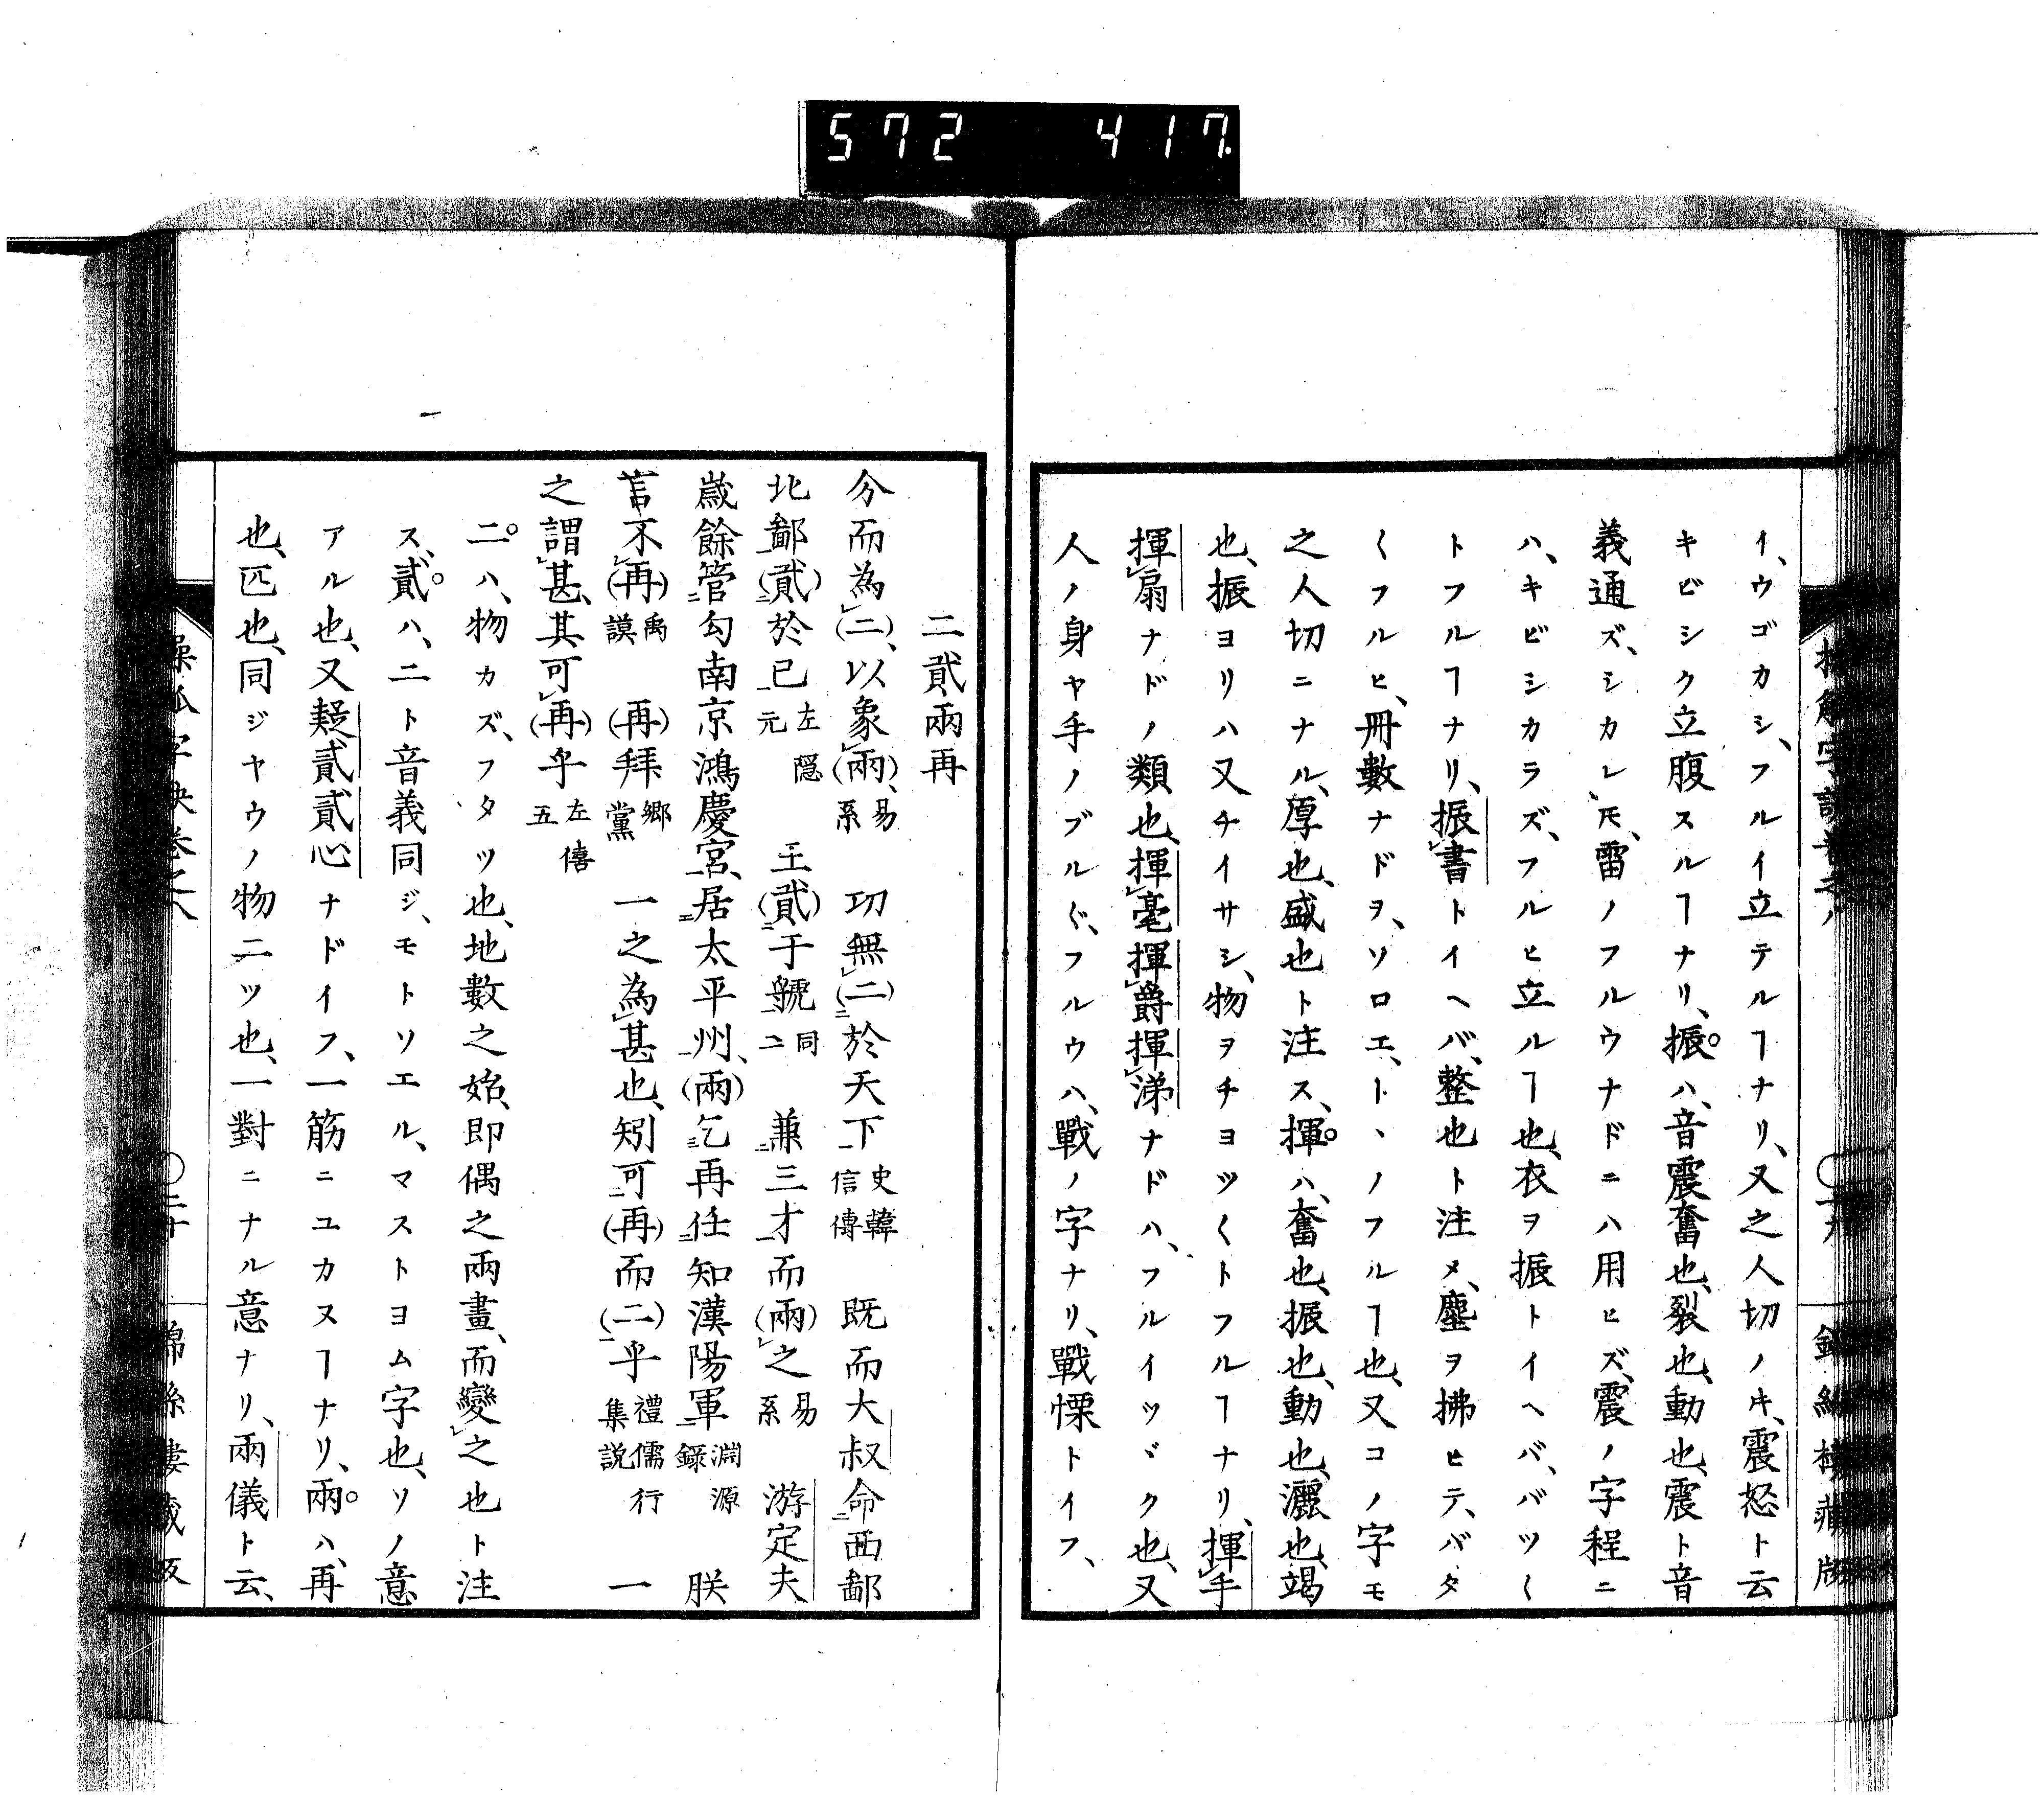 572 417
イ、ウゴカシ、フルイ立テルヿナリ、又之人切ノキ、震怒ト云
キビシク立腹スルヿナリ、振ハ、音震奮也、裂也、動也、震ト音
義通ズ、シカレ𪜈、雷ノフルウナドニハ用ヒズ、震ノ字程ニ
ハ、キビシカラズ、フルヒ立ルヿ也、衣ヲ振トイヘバ、バツ〱
トフルヿナリ、振書トイヘバ、整也ト注メ、塵ヲ拂ヒテ、バタ
〱フルヒ、冊數ナドヲ、ソロエ、トヽノフルヿ也、又コノ字モ
之人切ニナル、厚也、盛也ト注ス、揮ハ、奮也、振也、動也、灑也、竭
也、振ヨリハ又チイサシ、物ヲチヨツ〱トフルヿナリ、揮手
揮扇ナドノ類也、揮毫揮爵揮涕ナドハ、フルイツヾク也、又
人ノ身ヤ手ノブルヾ、フルウハ、戰ノ字ナリ、戰慄トイフ、
二貳兩再
分而為(二)、以象(兩)、易系 功無(二)於天下史韓信傳 既而大叔命西鄙
北鄙(貳)於已左隠元 王(貳)于虢同二 兼三才而(兩)之易系 游定夫
歳餘管勾南京鴻慶宮、居太平州、(兩)乞再任知漢陽軍淵源録 朕
言不(再)禹謨 (再)拜郷黨 一之為甚也、矧可(再)而(二)乎禮儒行集説 一
之謂甚、其可(再)乎左僖五
二ハ、物カズ、フタツ也、地數之始、即偶之兩畫、而變之也ト注
ス、貳ハ、二ト音義同ジ、モトソエル、マストヨム字也、ソノ意
アル也、又疑貳貳心ナドイフ、一筋ニユカヌヿナリ、兩ハ、再
也、匹也、同ジヤウノ物二ツ也、一對ニナル意ナリ、兩儀ト云、